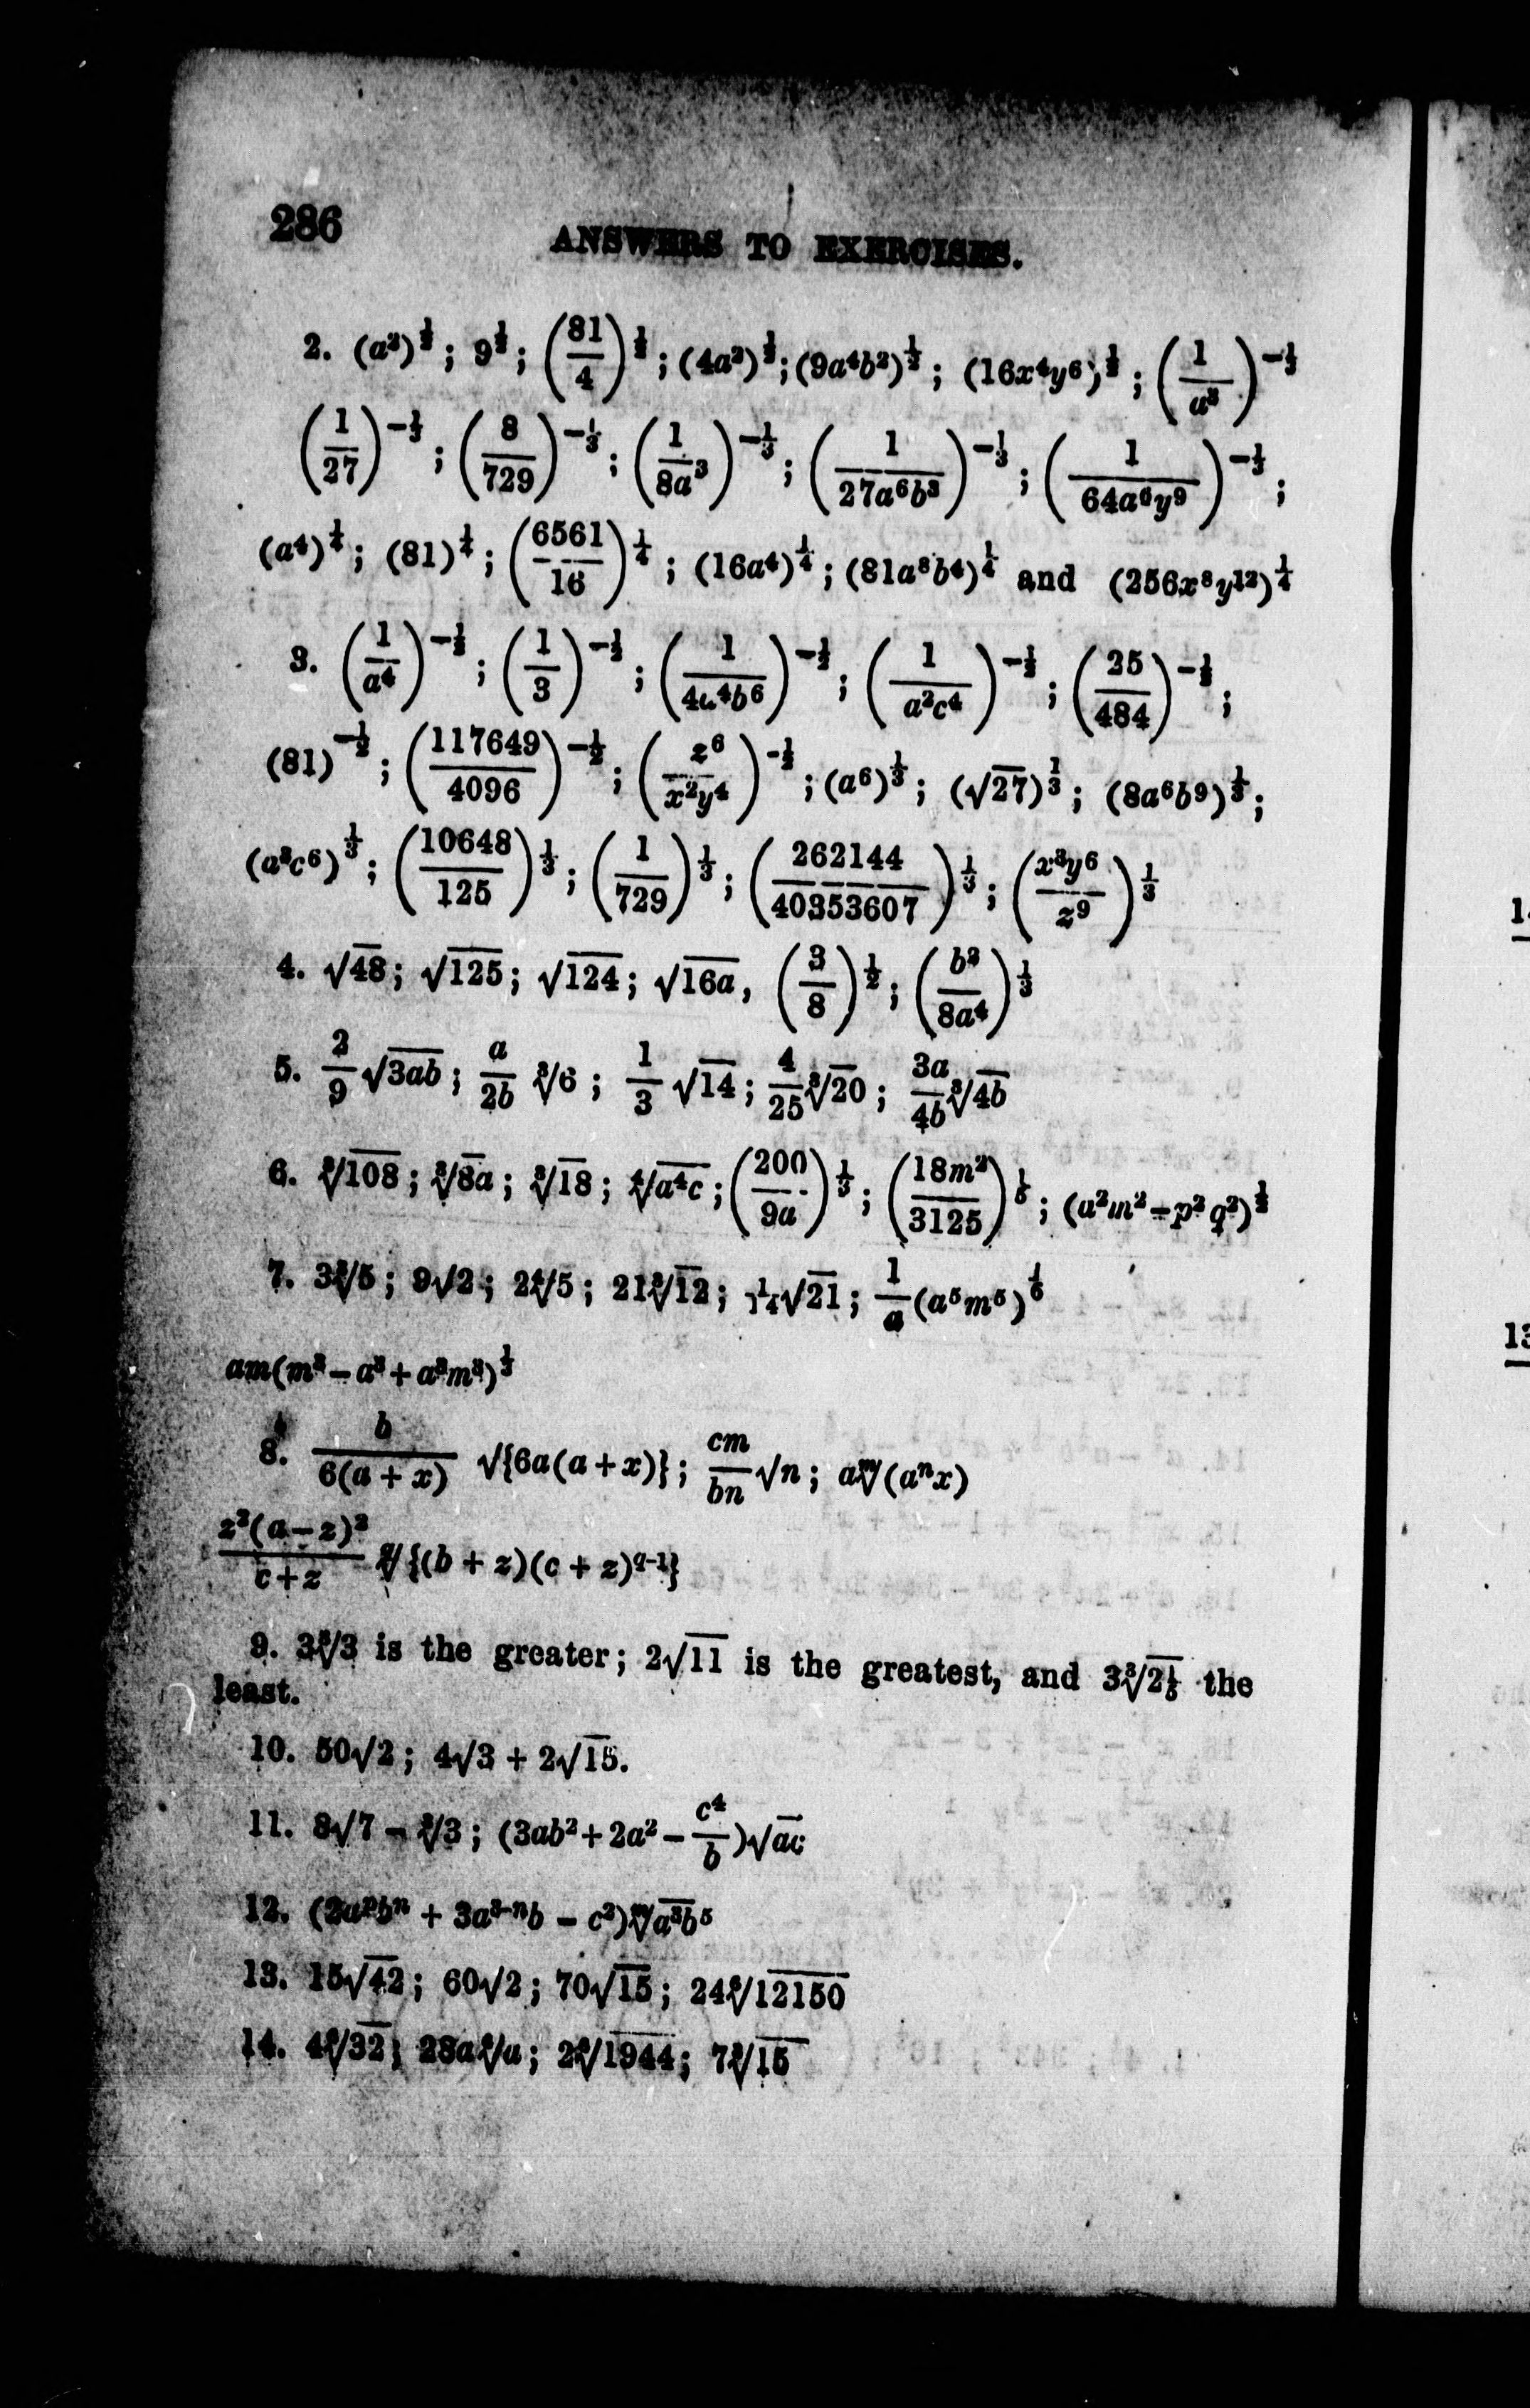 286
ANSWERS TO EXERCISES.
2. (a²)^½; 9^½; (81/4)^½; (4a²)^½; (9a⁴b²)^½; (16x⁴y⁶)^½; (1/a³)^-⅓
(1/27)^-⅓; (8/729)^-⅓; (1/8a³)^-⅓; (1/27a⁶b³)^-⅓; (1/64a⁶y⁹)^-⅓;
(a⁴)^¼; (81)^¼; (6561/16)^¼; (16a⁴)^¼; (81a⁸b⁴)^¼ and (256x⁸y¹²)^¼
3. (1/a⁴)^-½; (1/3)^-½; (1/4a⁴b⁶)^-½; (1/a²c⁴)^-½; (25/484)^-½;
(81)^-½; (117649/4096)^-½; (z⁶/x²y⁴)^-½; (a⁶)^⅓; (√27)^⅓; (8a⁶b⁹)^⅓;
(a³c⁶)^⅓; (10648/125)^⅓; (1/729)^⅓; (262144/40353607)^⅓; (x³y⁶/z⁹)^⅓
4. √48; √125; √124; √16a, (3/8)^½; (b²/8a⁴)^⅓
5. 2/9 √3ab; a/2b ∛6; 1/3 √14; 4/25 ∛20; 3a/4b ∛4b
6. ∛108; ∛8a; ∛18; ∜a⁴c; (200/9a)^⅓; (18m²/3125)^⅕; (a²m²-p²q²)^½
7. 3∛5; 9√2; 2∜5; 21∛12; 1/14√21; 1/a (a⁵m⁵)^⅙
am(m³ – a³ + a³m³)^⅓
8. b/6(a + x) √{6a(a + x)}; cm/bn √n; a ᵐ√(aⁿx)
z²(a – z)²/c + z ᑫ√{(b + z)(c + z)^q-1}
9. 3∛3 is the greater; 2√11 is the greatest, and 3∛2⅕ the
least.
10. 50√2; 4√3 + 2√15.
11. 8√7 – ∛3; (3ab² + 2a² – c⁴/b)√ac
12. (2aᵖbⁿ + 3a^3-n b – c²) ᵐ√a³b⁵
13. 15√42; 60√2; 70√15; 24⁶√12150
14. 4⁶√32; 28a⁶√a; 2⁶√1944; 7∛15
1
13